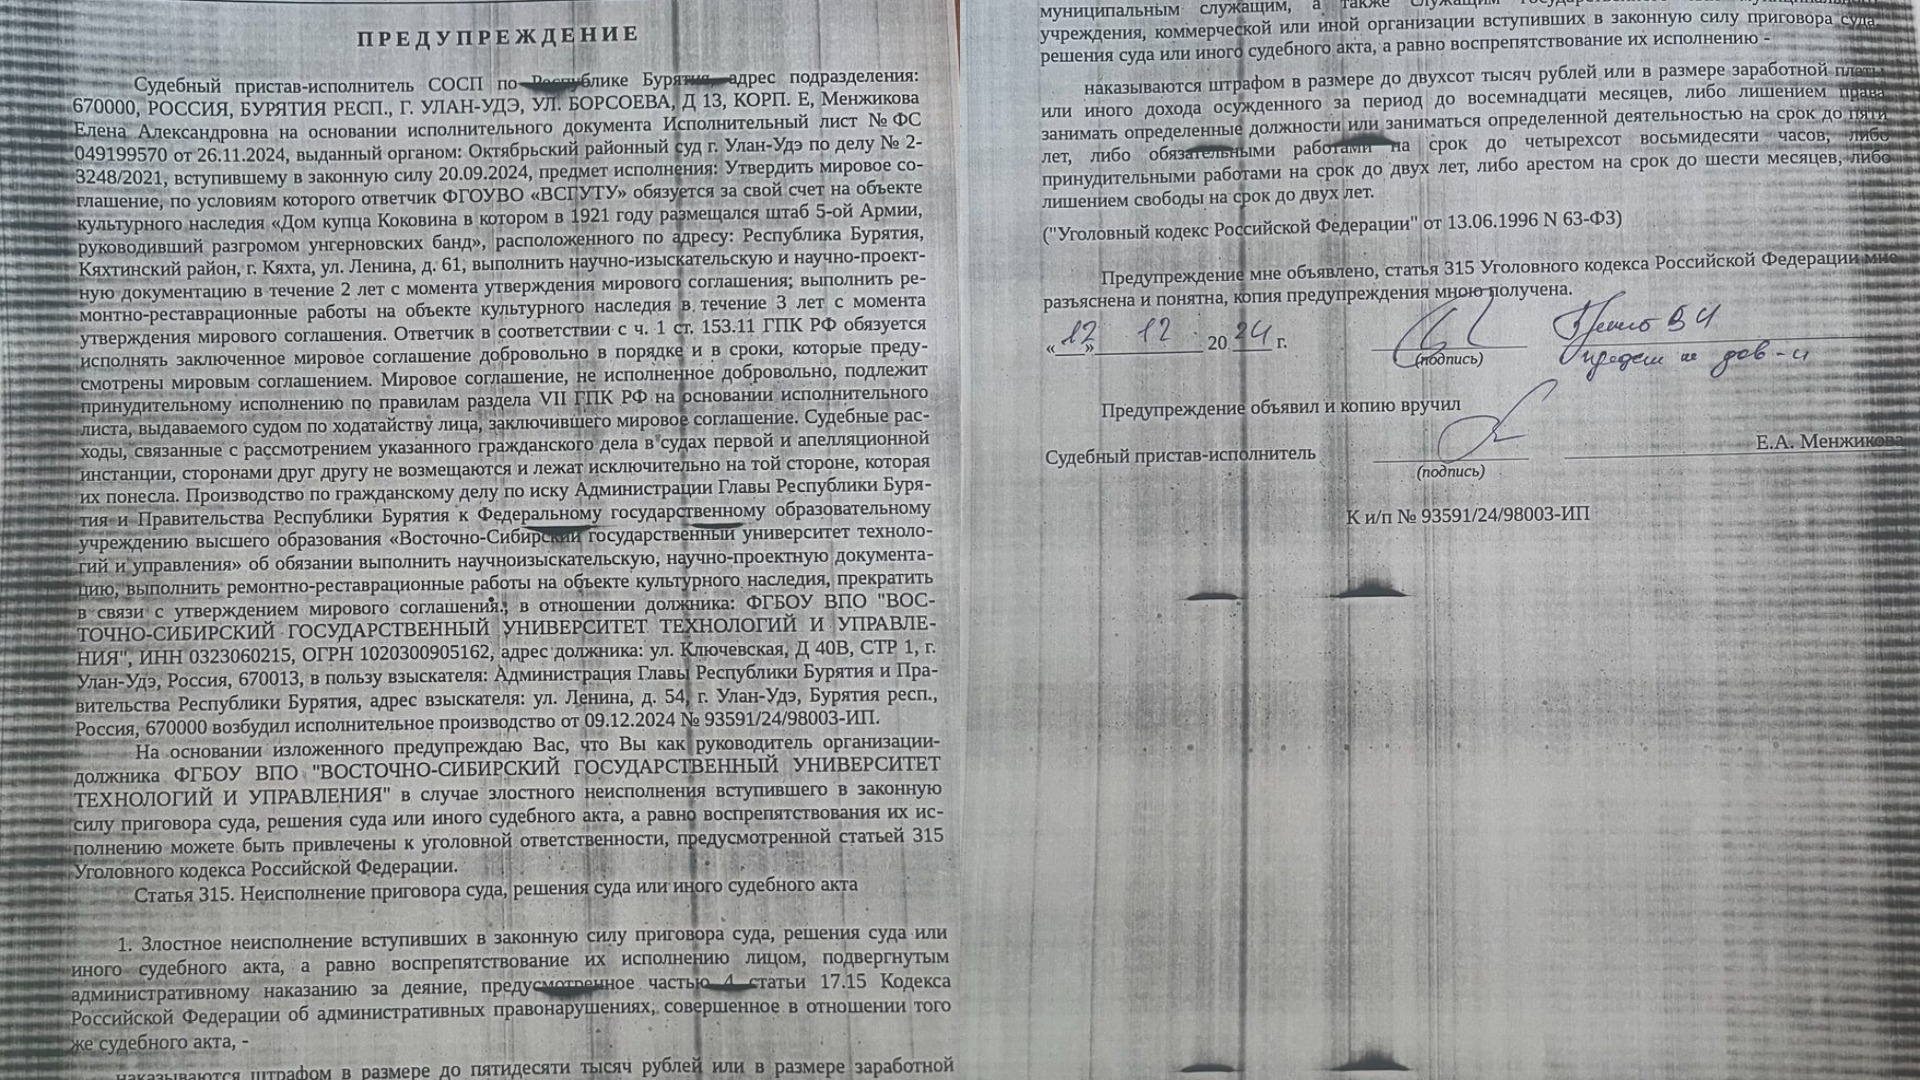 ПРЕДУПРЕЖДЕНИЕ
Судебный пристав-исполнитель СОСП по Республике Бурятия, адрес подразделения:
670000, РОССИЯ, БУРЯТИЯ РЕСП., Г. УЛАН-УДЭ, УЛ. БОРСОЕВА, Д 13, КОРП. Е, Менжикова
Елена Александровна на основании исполнительного документа Исполнительный лист № ФС
049199570 от 26.11.2024, выданный органом: Октябрьский районный суд г. Улан-Удэ по делу № 2-
3248/2021, вступившему в законную силу 20.09.2024, предмет исполнения: Утвердить мировое со-
глашение, по условиям которого ответчик ФГОУВО «ВСГУТУ» обязуется за свой счет на объекте
культурного наследия «Дом купца Коковина в котором в 1921 году размещался штаб 5-ой Армии,
руководивший разгромом унгерновских банд», расположенного по адресу: Республика Бурятия,
Кяхтинский район, г. Кяхта, ул. Ленина, д. 61, выполнить научно-изыскательскую и научно-проект-
ную документацию в течение 2 лет с момента утверждения мирового соглашения; выполнить ре-
монтно-реставрационные работы на объекте культурного наследия в течение 3 лет с момента
утверждения мирового соглашения. Ответчик в соответствии с ч. 1 ст. 153.11 ГПК РФ обязуется
исполнять заключенное мировое соглашение добровольно в порядке и в сроки, которые преду-
смотрены мировым соглашением. Мировое соглашение, не исполненное добровольно, подлежит
принудительному исполнению по правилам раздела VII ГПК РФ на основании исполнительного
листа, выдаваемого судом по ходатайству лица, заключившего мировое соглашение. Судебные рас-
ходы, связанные с рассмотрением указанного гражданского дела в судах первой и апелляционной
инстанции, сторонами друг другу не возмещаются и лежат исключительно на той стороне, которая
их понесла. Производство по гражданскому делу по иску Администрации Главы Республики Буря-
тия и Правительства Республики Бурятия к Федеральному государственному образовательному
учреждению высшего образования «Восточно-Сибирский государственный университет техноло-
гий и управления» об обязании выполнить научноизыскательскую, научно-проектную документа-
цию, выполнить ремонтно-реставрационные работы на объекте культурного наследия, прекратить
в связи с утверждением мирового соглашения.; в отношении должника: ФГБОУ ВПО "ВОС-
ТОЧНО-СИБИРСКИЙ ГОСУДАРСТВЕННЫЙ УНИВЕРСИТЕТ ТЕХНОЛОГИЙ И УПРАВЛЕ-
НИЯ", ИНН 0323060215, ОГРН 1020300905162, адрес должника: ул. Ключевская, Д 40В, СТР 1, г.
Улан-Удэ, Россия, 670013, в пользу взыскателя: Администрация Главы Республики Бурятия и Пра-
вительства Республики Бурятия, адрес взыскателя: ул. Ленина, д. 54, г. Улан-Удэ, Бурятия респ.,
Россия, 670000 возбудил исполнительное производство от 09.12.2024 № 93591/24/98003-ИП.
На основании изложенного предупреждаю Вас, что Вы как руководитель организации-
должника ФГБОУ ВПО "ВОСТОЧНО-СИБИРСКИЙ ГОСУДАРСТВЕННЫЙ УНИВЕРСИТЕТ
ТЕХНОЛОГИЙ И УПРАВЛЕНИЯ" в случае злостного неисполнения вступившего в законную
силу приговора суда, решения суда или иного судебного акта, а равно воспрепятствования их ис-
полнению можете быть привлечены к уголовной ответственности, предусмотренной статьей 315
Уголовного кодекса Российской Федерации.
Статья 315. Неисполнение приговора суда, решения суда или иного судебного акта
1. Злостное неисполнение вступивших в законную силу приговора суда, решения суда или
иного судебного акта, а равно воспрепятствование их исполнению лицом, подвергнутым
административному наказанию за деяние, предусмотренное частью 4 статьи 17.15 Кодекса
Российской Федерации об административных правонарушениях, совершенное в отношении того
же судебного акта, -
наказываются штрафом в размере до пятидесяти тысяч рублей или в размере заработной
муниципальным служащим, а также служащим
учреждения, коммерческой или иной организации вступивших в законную силу приговора суда,
решения суда или иного судебного акта, а равно воспрепятствование их исполнению -
наказываются штрафом в размере до двухсот тысяч рублей или в размере заработной платы
или иного дохода осужденного за период до восемнадцати месяцев, либо лишением права
занимать определенные должности или заниматься определенной деятельностью на срок до пяти
лет, либо обязательными работами на срок до четырехсот восьмидесяти часов, либо
принудительными работами на срок до двух лет, либо арестом на срок до шести месяцев, либо
лишением свободы на срок до двух лет.
("Уголовный кодекс Российской Федерации" от 13.06.1996 N 63-ФЗ)
Предупреждение мне объявлено, статья 315 Уголовного кодекса Российской Федерации мне
разъяснена и понятна, копия предупреждения мною получена.
«12» 12 2024 г.
(подпись)
Предупреждение объявил и копию вручил
Судебный пристав-исполнитель
Е.А. Менжикова
(подпись)
К и/п № 93591/24/98003-ИП